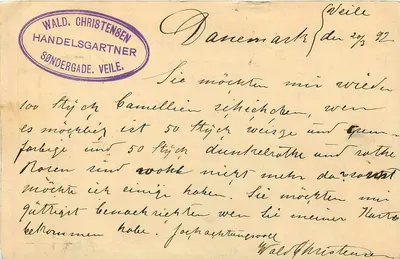 WALD. CHRISTENSEN
HANDELSGARTNER
SØNDERGADE. VEILE.
Veile
Danemark den 20/3 92
Sie möchten mir wieder
100 Styck Camellien schicken, wen
es möchlig ist 50 Styck weisze und
farbige und 50 Styck dunkelrothe und rothe
Rosen sind wohl nicht mehr da sonst
möchte ich einige haben. Sie möchten mir
güttigst benachrichten wen Sie meiner Karte
bekommen habe. Hochachtungsvoll
Wald Christensen